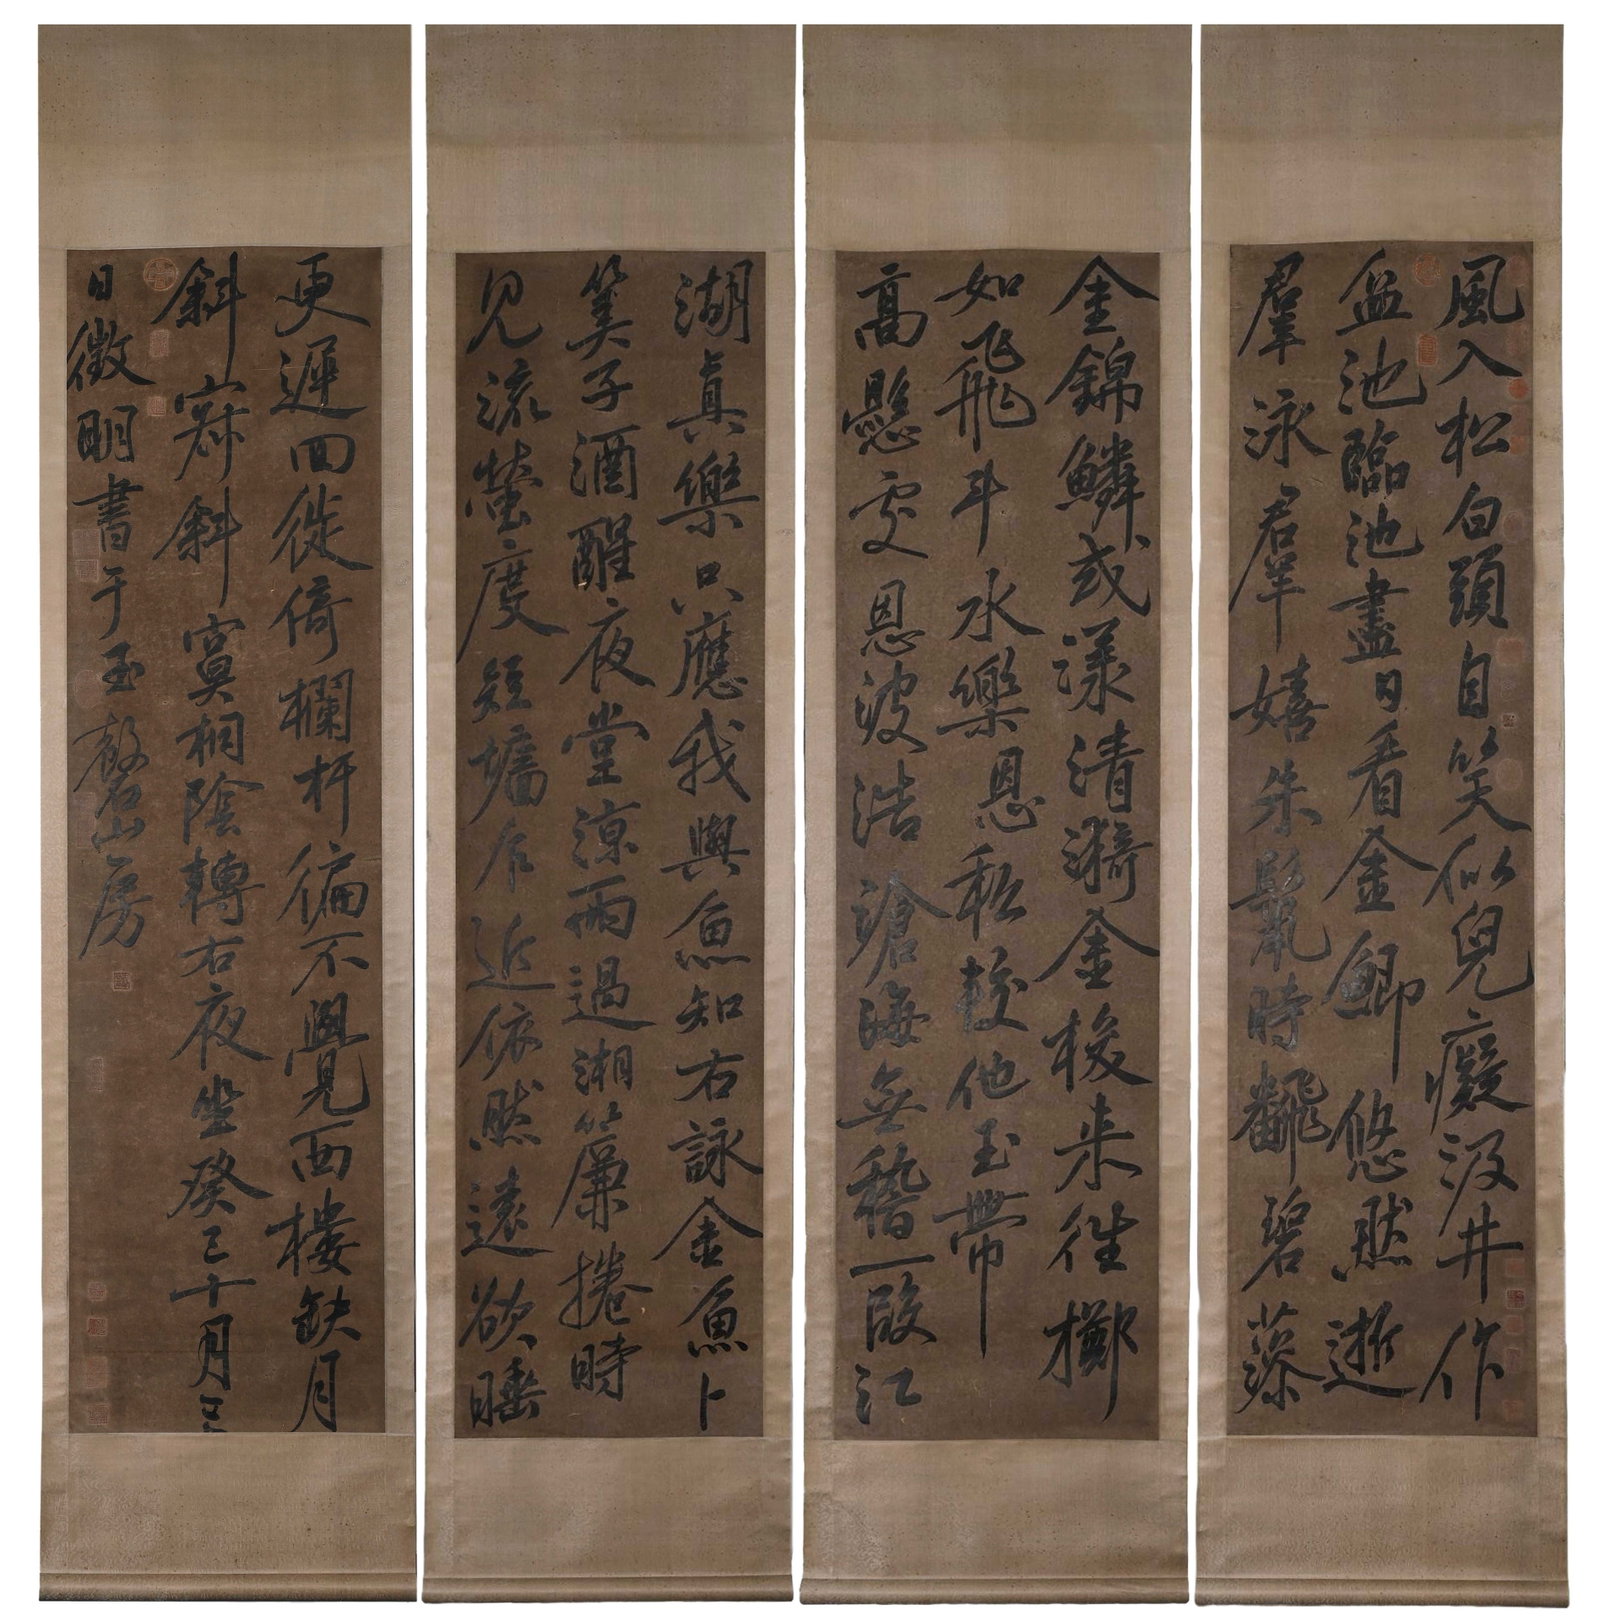 風入松白頭自笑似兒癡汲井作
盆池臨池盡日看金鯽悠然逝
羣泳羣嬉朱鬣時翻碧藻
金錦鱗或漾清漪金梭來往擲
如飛斗水樂恩私較他玉帶
高懸處恩波浩滄海無稽一段江
湖真樂只應我與魚知右詠金魚卜
筭子酒醒夜堂涼雨過湘簾捲時
見流螢度短墻乍近依然遠欲睡
更遲回徙倚欄杆徧不覺西樓缺月
斜寂斜寞桐陰轉右夜坐癸巳十月三
日徵明書于玉磬山房